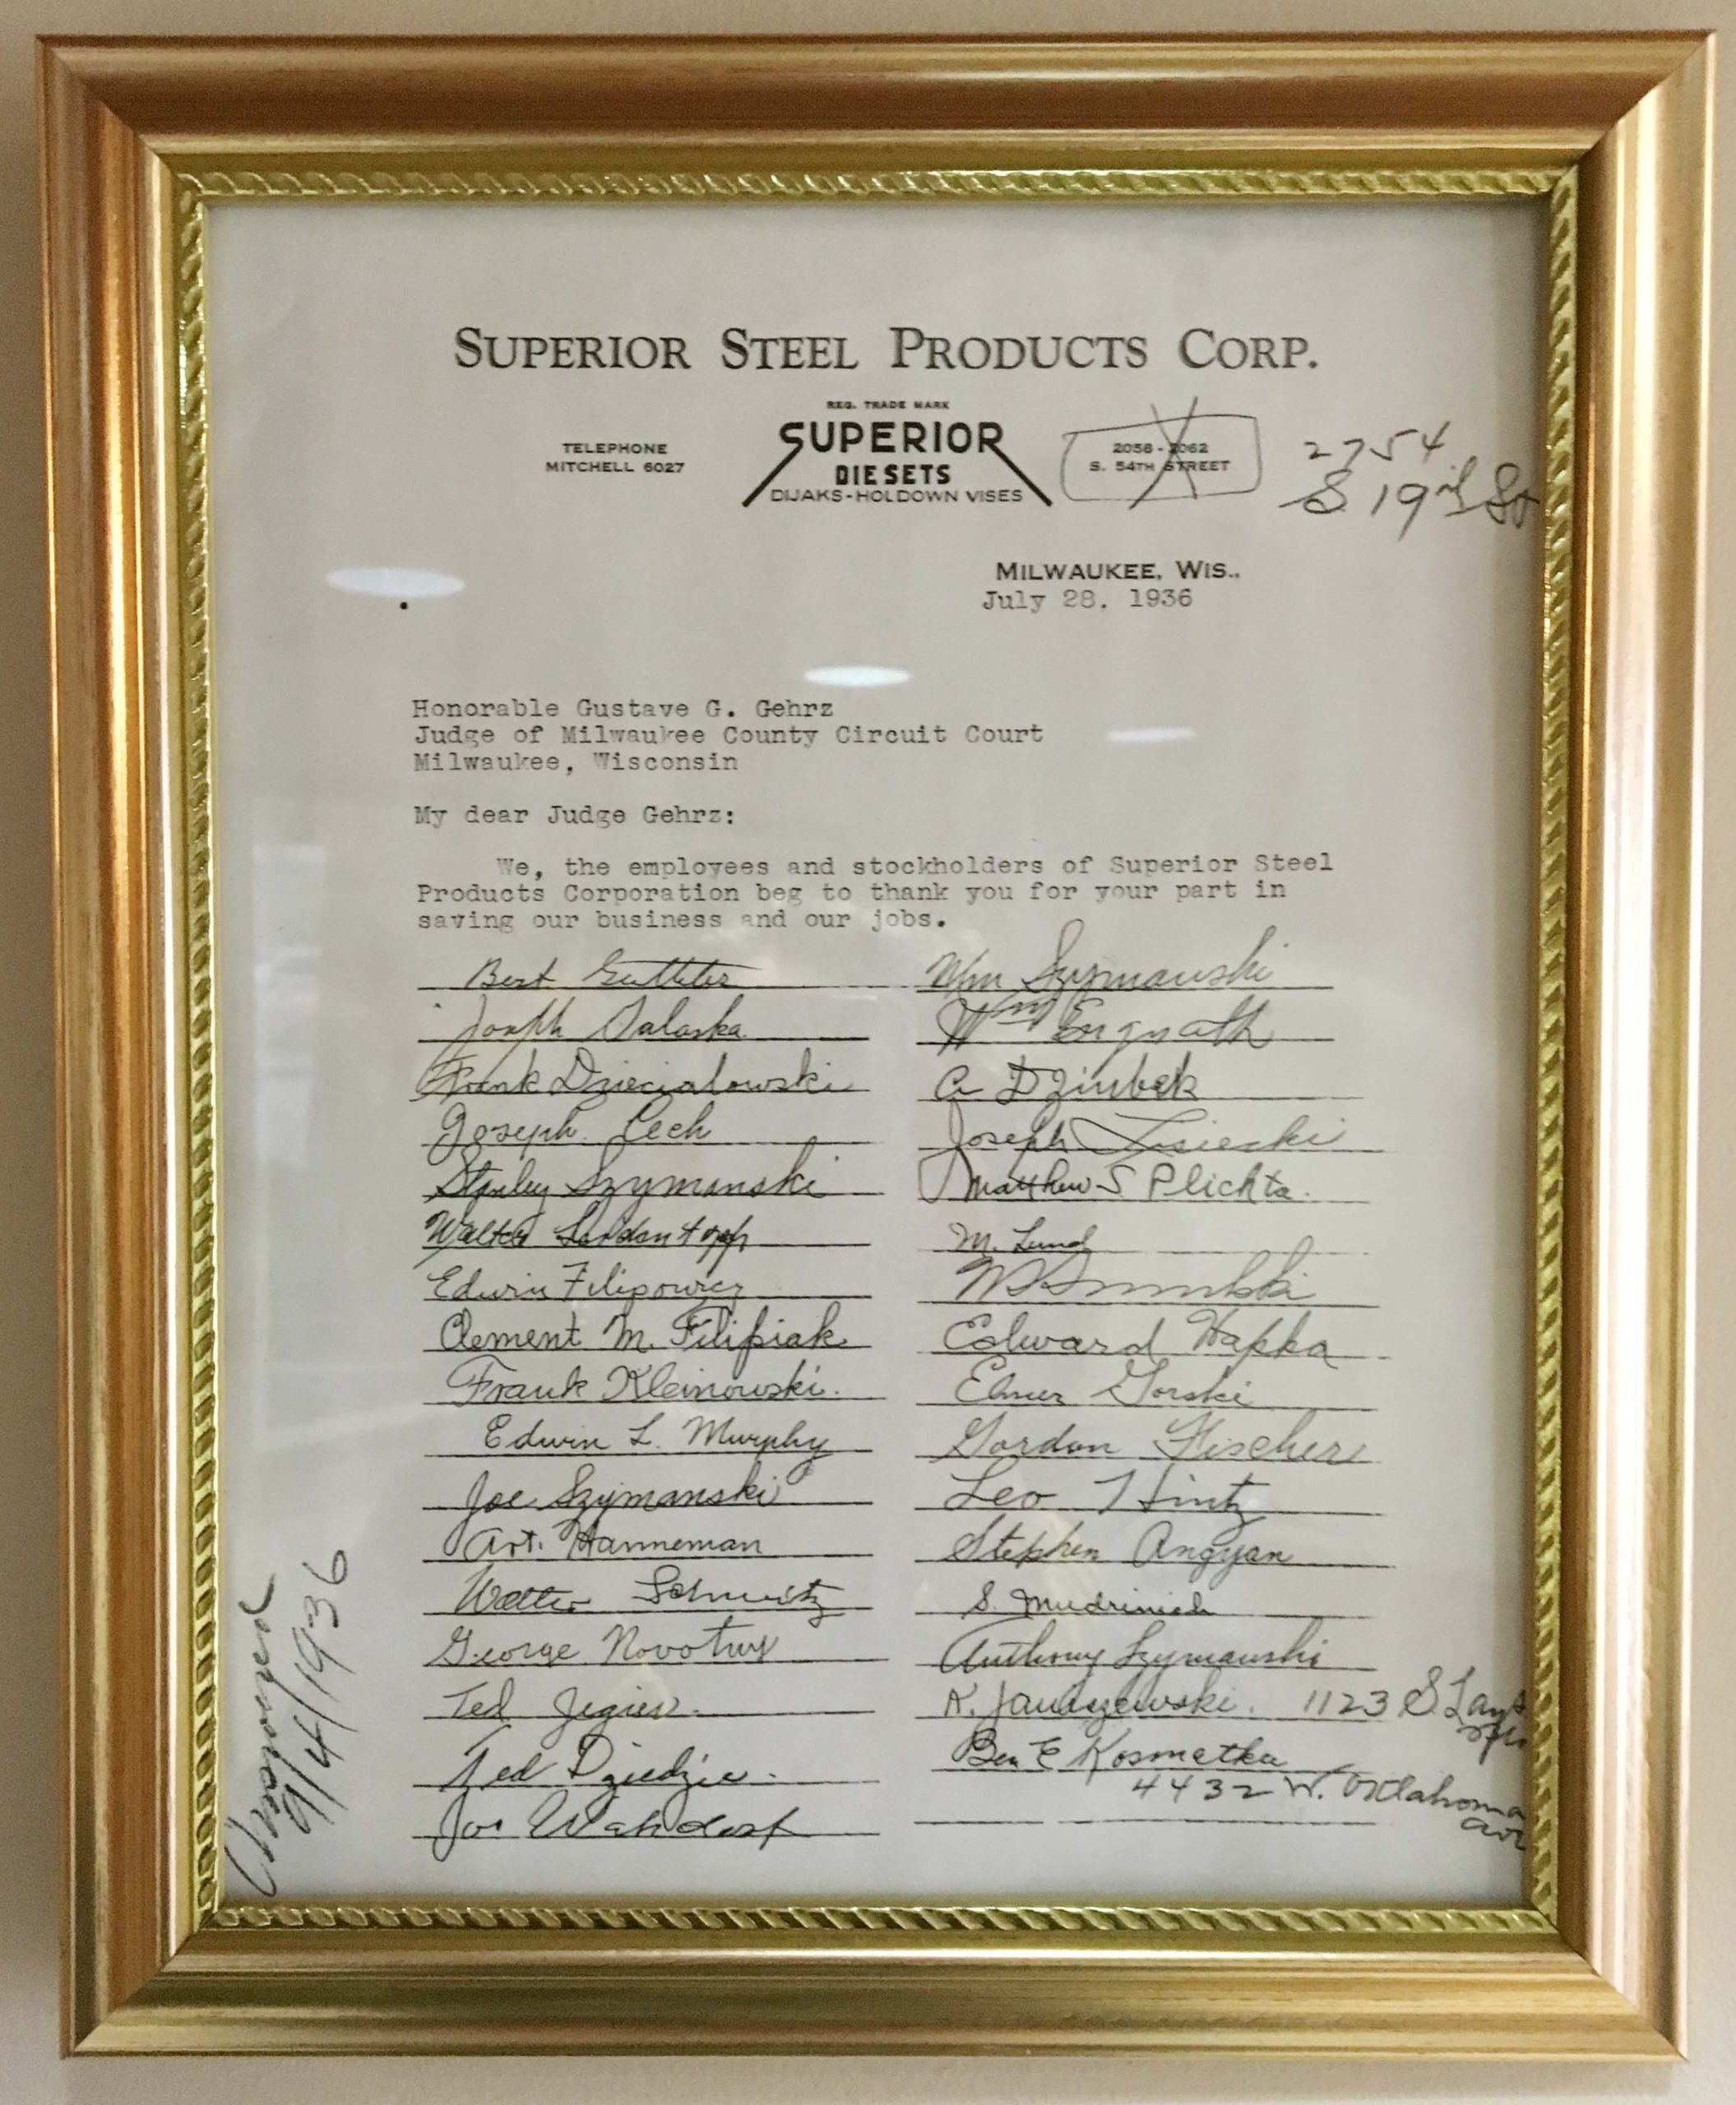 SUPERIOR STEEL PRODUCTS CORP.
REG. TRADE MARK
SUPERIOR
DIE SETS
DIJAKS-HOLDOWN VISES
TELEPHONE
MITCHELL 6027
2058 - 2062
S. 54TH STREET
2754
S 19th St
MILWAUKEE, WIS.,
July 28, 1936
Honorable Gustave G. Gehrz
Judge of Milwaukee County Circuit Court
Milwaukee, Wisconsin
My dear Judge Gehrz:
We, the employees and stockholders of Superior Steel
Products Corporation beg to thank you for your part in
saving our business and our jobs.
Bert
Joseph
Frank Dziecialowski
Joseph Lech
Stanley Szymanski
Walter
Edwin Filipowicz
Clement M. Filipiak
Frank Kleinowski.
Edwin L. Murphy
Joe Szymanski
Art. Hanneman
Walter
George Novotny
Ted
Ted Dziedzic.
Joe
Wm Szymanski
Wm
Joseph Lisiecki
Matthew S Plichta.
M. Lund
Edward Hapka
Elmer Gorski
Gordon Fischer
Leo Hintz
Stephen Angyan
S.
Anthony Szymanski
K. Januszewski. 1123 S. Lay
Ben E Kosmetka
4432 W. Oklahoma
ave
Answered
9/4/1936